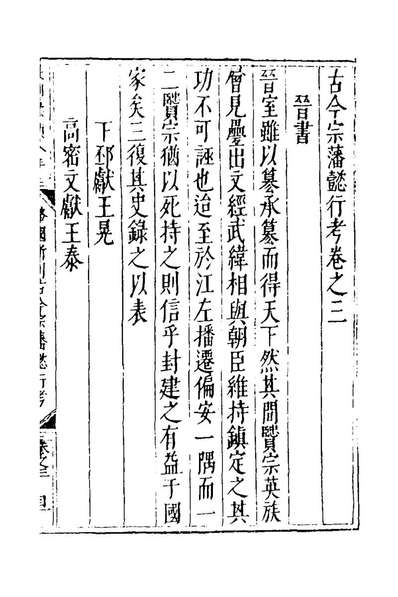 古今宗藩懿行考卷之三
晉書
晉室雖以墓承墓而得天下然其間賢宗英族
會見疊出文經武緯相與朝臣維持鎮定之其
功不可誣也迨至於江左播遷偏安一隅而一
二賢宗猶以死持之則信乎封建之有益于國
家矣三復其史錄之以表
下邳獻王晃
高密文獻王泰
古今宗藩懿行考
卷之三